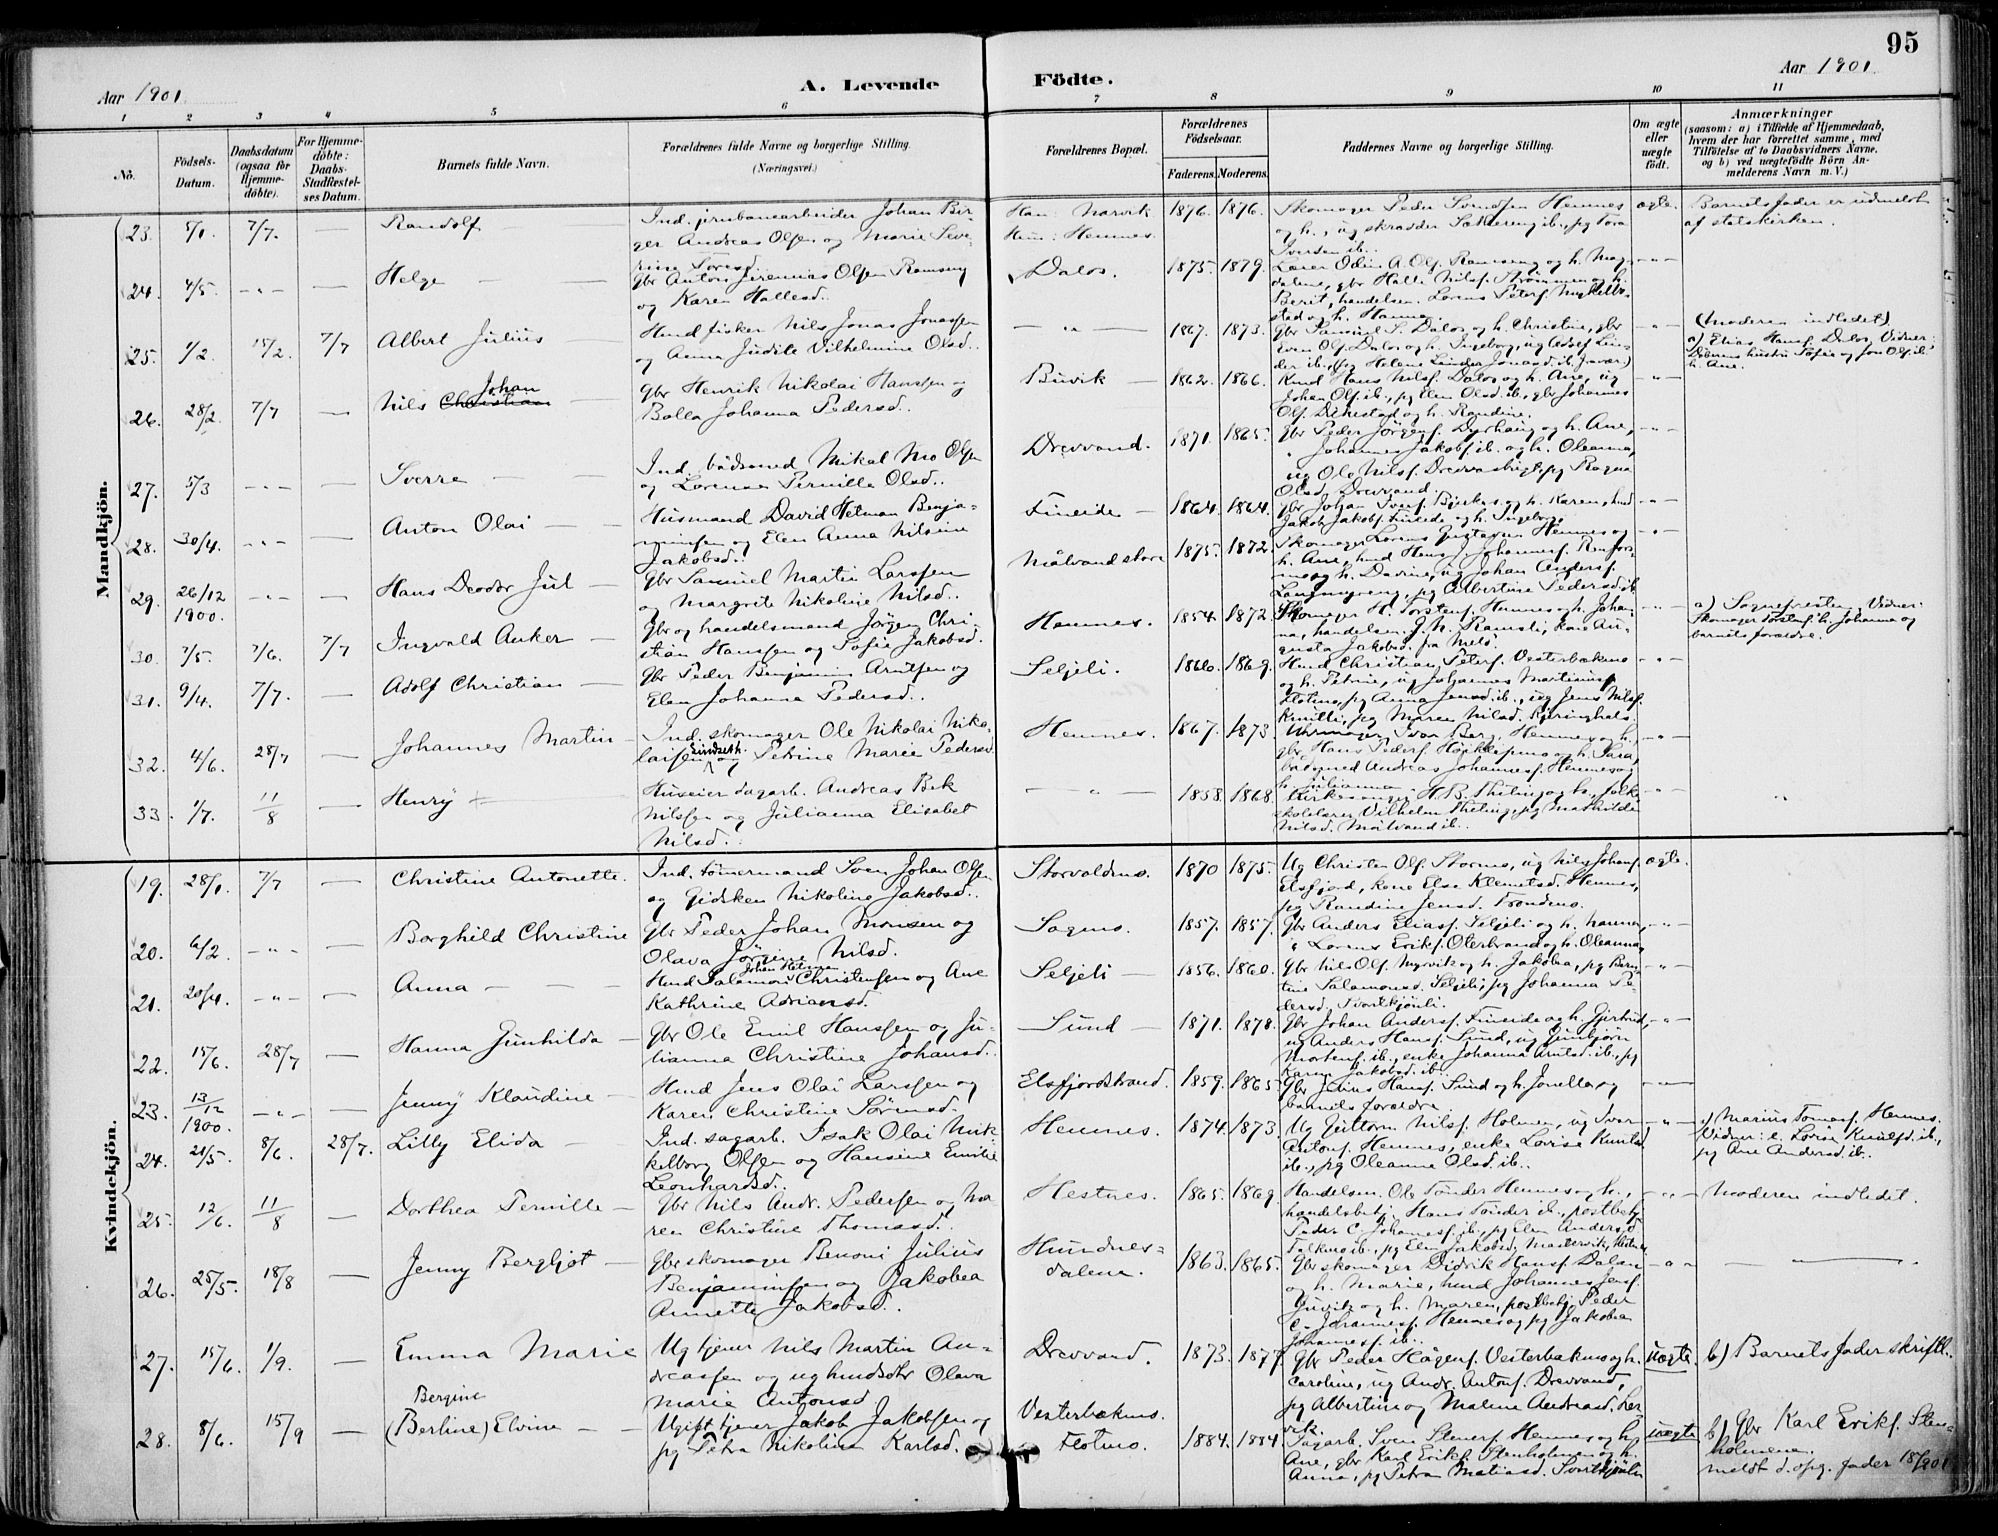 95
Aar 1901.
A. Levende Födte.
Aar 1901.
1 2 3 4 5 6 7 8 9 10 11
No.
Födsels-
Datum.
Daabsdatum
(ogsaa for
Hjemme-
döbte).
For Hjemme-
döbte:
Daabs-
Stadfæstel-
ses Datum.
Barnets fulde Navn.
Forældrenes fulde Navne og borgerlige Stilling.
(Næringsvei.)
Forældrenes Bopæl.
Forældrenes
Födselsaar.
Faderens. Moderens.
Faddernes Navne og borgerlige Stilling.
Om ægte
eller
uægte
födt.
Anmærkninger
(saasom: a) i Tilfælde af Hjemmedaab,
hvem der har forrettet samme, med
Tilföielse af to Daabsvidners Navne,
og b) ved uægtefödte Börn An-
melderens Navn m. V.)
Mandkjön.
23. 5/1 7/7. — Randolf —
Ind. jernbanearbeider Johan Bir-
ger Andreas Olsen og Marie Seve-
rine Toresd.
Han: Narvik
Hun: Hemnes.
1876. 1876.
Skomager Peder Svendsen Hemnes
og h., ug skrædder Sætereng ib., pg Tora
Iversen ib.
ægte.
Barnets fader er udmeldt
af statskirken.
24. 4/5. -"- — Helge —
Gbr Anton Jeremias Olsen Ramseng
og Karen Hallesd.
Dalos. 1875. 1879.
Lærer Odin A. Ols. Ramseng og h. Mag-
dalene, gbr Halle Nilsf. Strømmen og h.
Berit, handelsm. Lorens Petersf. Mykkelbo-
stad og h. Hanna.
-"-
25. 1/2. 15/2. 7/7 Albert Julius —
Husmd fisker Nils Jonas Jonassen
og Anna Judite Vilhelmine Olsd.
— " — 1867. 1873.
Gbr Samuel S. Dalos og h. Christine, gbr
Sven Olf. Dalos og h. Ingeborg, ug Adolf Lin-
der ib., pg Helene Linder
-"-
(Moderen indledet).
a) Elias Hansf. Dalos Vidner:
hustru Sofie og Jon Olf. ib.
h. Ane.
26. 28/2. 7/7 — Nils Christian Johan —
Gbr Henrik Nikolai Hanssen og
Bolla Johanna Pedersd.
Buvik — 1862. 1866.
Kmd Hans Nilsf. Dalos og h. Ane, ug
Johan Olf. ib., pg Elen Olsd. ib., gbr Johannes
Olf. Dikestad og h. Randine.
-"-
27. 5/3 -"- — Sverre —
Ind. bådsmed Mikal Mo Olsen
og Lorense Pernille Olsd.
Drevvand. 1871. 1865.
Gbr Peder Jörgenf. Dyrhaug og h. Ane,
" Johannes Jakobf. ib. og h. Oleanna,
ug Ole Nilsf. Drevvashøgt, pg Ragna
Olsd. Drevvand.
-"-
28. 30/4. -"- — Anton Olai —
Husmand David Hetman Benja-
minsen og Elen Anna Nilsine
Jakobsd.
Fineide — 1864. 1864.
Gbr Johan Iverf. Bjerkes og h. Karen, hmd
Jakob Jakobf. Fineide og h. Ingeborg.
-"-
29. 26/12 1900. -"- — Hans Deodor Jul —
Gbr Samuel Martin Larssen
og Margrete Nikoline Nilsd.
Målvand store 1875. 1872.
Skomager Lorens Gustavsen Hemnes og
h. Ane, hmd Hans J. Johannesf. Renfors-
mo og h. Davine, ug Johan Andersf.
Langmyreng, pg Albertine Pedersd. ib.
-"-
30. 7/5. 7/6. 7/7 Ingvald Anker —
Gbr og handelsmand Jörgen Chri-
stian Hanssen og Sofie Jakobsd.
Hemnes. 1854. 1872.
Skomager H. Torstenf. Hemnes og h. Johan-
na, handelsm. J. N. Ramsli, kone Au-
gusta Jakobsd. fra Melö.
-"-
a) Sognepresten, Vidner:
Skomager Torstenf. h. Johanna og
barnets forældre.
31. 9/4. 7/7. — Adolf Christian —
Gbr Peder Benjamin Arntsen og
Elen Johanna Pedersd.
Seljeli. 1866. 1869.
Hmd Christian Petersf. Vesterbækmo
og h. Petrine, ug Johannes Martinusf.
Flotmo, pg Anna Jensd. ib., ug Jens Nilsf.
Knutli, pg Maren Nilsd. Kjeringhals.
-"-
32. 4/6. 28/7 — Johannes Martin —
Ind. skomager Ole Nikolai Niko-
laisen Lindseth og Petrine Marie Pedersd.
Hemnes. 1867. 1873.
Urmager Ivar Berg, Hemnes og h.,
gbr Hans Pedersf. Högklepmo og h. Sara,
bådsmed Andreas Johannesf. Hemnes og
h. Julianna.
-"-
33. 1/7. 11/8 — Henry + —
Huseier dagarb. Andreas Bek
Nilssen og Julianna Elisabet
Nilsd.
— " — 1858. 1868.
Kirkesanger H. B. Theting og h., folke-
skolelærer Vilhelm Theting, pg Mathilde
Nilsd. Målvand ib.
"
Kvindekjön.
19. 28/1. 7/7 — Christine Antonette.
Ind. tömmermand Sven Johan Olsen
og Gidsken Nikoline Jakobsd.
Storvoldmo. 1870 1875.
Ug Christen Olf. Stormo, ug Nils Johanf.
Elsfjord, kone Else Klemetsd. Hemnes,
pg Randine Jensd. Trondmo.
ægte.
20. 6/2. -"- — Borghild Christine
Gbr Peder Johan Monsen og
Olava Jörgine Nilsd.
Sagmo. 1857. 1857.
Gbr Anders Eliasf. Seljeli og h. Hanna,
" Lorens Erikf. Oterstrand og h. Oleanna,
-"-
21. 20/4. -"- — Anna —
Hmd Salamon Johan Helman Christensen og Ane
Kathrine Adriansd.
Seljeli — 1856. 1860.
Gbr Nils Olf. Myrvik og h. Jakobea, pg Bern-
tine Salamonsd. Seljeli, pg Johanna Pe-
dersd. Svartkjönli.
-"-
22. 15/6. 28/7 — Hanna Gunhilda —
Gbr Ole Emil Hanssen og Ju-
lianna Christine Johansd.
Sund — 1871. 1878.
Gbr Johan Andersf. Fineide og h. Gjertrud,
ug Anders Hansf. Sund, ug Gunbjörn
Mortenf. ib., enke Johanna Arntsd. ib., pg
Karen Jakobsd. ib.
-"-
23. 13/12 1900. -"- — Jenny Klaudine —
Hmd Jens Olai Larssen og
Karen Christine Sörensd.
Elsfjordstrand. 1859. 1865.
Gbr Julius Hansf. Sund og h. Jonetta og
barnets forældre.
-"-
24. 21/5. 8/6. 28/7. Lilly Elida —
Ind. sagarb. Isak Olai Mik-
kelborg Olsen og Hansine Emilie
Leonhardsd.
Hemnes. 1874. 1873.
Ug Guttorm Nilsf. Holmen, ug Ivar
Antonf. Hemnes, enke Lovise Knutsd.
ib., pg Oleanne Olsd. ib.
-"-
a) Marius Tomasf. Hemnes,
Vidner: e. Lovise Knutsd. ib.,
pg Ane Andersd. ib.
25. 12/6. 11/8 — Dorthea Pernille —
Gbr Nils Andr. Pedersen og Ma-
ren Christine Thomasd.
Hestnes. 1865. 1869.
Handelsm. Ole Tönder Hemnes og h.,
handelsbetj. Hans Tönder ib., postbetj.
Peder C. Johannesf. ib., pg Elen Andersd.
Falkmo ib., pg Elen Jakobsd. Mastervik,
-"-
Moderen indledet.
26. 25/5. 18/8 — Jenny Bergljot —
Gbr skomager Benoni Julius
Benjaminsen og Jakobea
Annette Jakobsd.
Hundnes-
dalene. 1863. 1865.
Gbr skomager Didrik Hansf. Dalan
og h. Marie, hmd Johannes Jensf.
Juvik og h. Maren, postbetj. Peder
C. Johannesf. Hemnes og pg Jakobea
Johannesf. ib.
-"-
— " —
27. 15/6. 1/9. — Emma Marie
Ug tjener Nils Martin An-
dreassen og ug hmdsdtr Olava
Marie Antonsd.
Drevvand. 1873. 1877.
Gbr Peder Hågenf. Vesterbækmo og h.
Caroline, ug Andr. Antonf. Drevvand,
pg Albertine og Maline Andreasd. Ler-
vik.
uægte.
b) Barnets fader skriftl.
28. 8/6. 15/9 — Bergine
(Berline) Elvine —
Ugift tjener Jakob Jakobsen og
pg Petra Nikoline Karlsd.
Vesterbækmo.
Flotmo. 1884. 1884.
Sagarb. Sven Stenerf. Hemnes og h.
Ane, gbr Karl Erikf. Stenholmen og h.
Anna, pg Petra Matiasd. Svartkjönli
uægte
b) Gbr Karl Erikf. Sten-
holmene.
meldt d. opg. fader 18/901